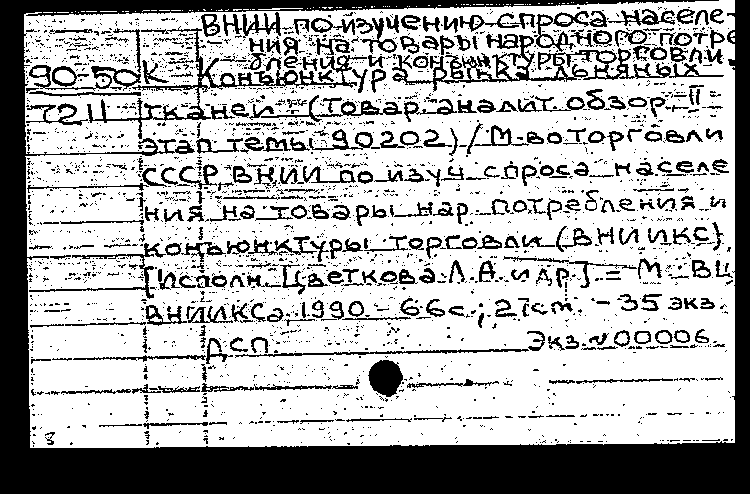 ВНИИ по изучению спроса населе-
ния на товары народного потре
бления и конъюнктуры торговли.
90-50к Конъюнктура рынка льняных
7211 тканей - (товар. аналит. обзор. II
этап темы 90202) / М-во торговли
СССР, ВНИИ по изуч. спроса населе
ния на товары нар. потребления и
конъюнктуры торговли (ВНИИКС),
[Исполн. Цветкова Л.А. и др]. - М: ВЦ
ВНИИКСа, 1990 - 66с.; 27см. - 35 экз.
ДСП. Экз.№00006.
8